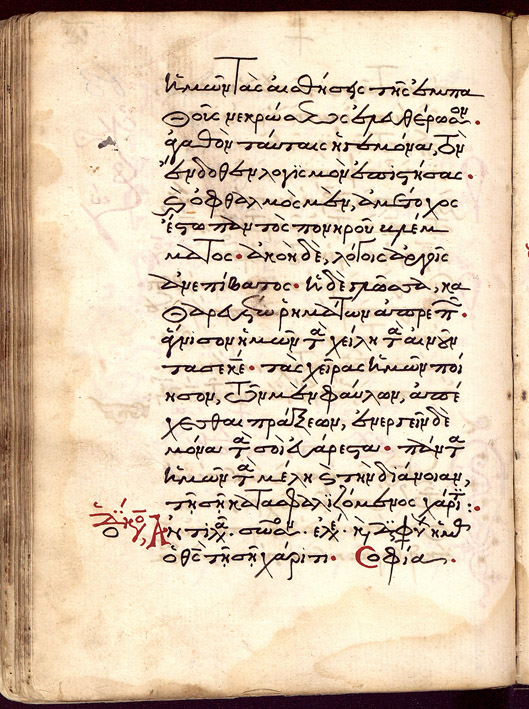 ἡμῶν τὰς αἰσθήσεις τῆς ἐμπα
θοῦς νεκρώσεως ἐλευθέρωσον·
ἀγαθὸν ταύταις ἡγεμόνα, τὸν
ἔνδοθεν λογισμὸν ἐπιστήσας·
καὶ ὀφθαλμὸς μὲν, ἀμέτοχος
ἔστω παντὸς πονηροῦ βλέμ
ματος· ἀκοὴ δὲ, λόγοις ἀργοῖς
ἀνεπίβατος· ἡ δὲ γλῶσσα, κα
θαρευέτω ῥημάτων ἀπρεπῶν·
ἅγνισον ἡμῶν τὰ χείλη τὰ αἰνοῦν
τα σε κύριε· τὰς χεῖρας ἡμῶν ποί
ησον, τῶν μὲν φαύλων, ἀπέ
χεσθαι πράξεων, ἐνεργεῖν δὲ
μόνα τὰ σοὶ εὐάρεστα· πάντα
ἡμῶν τὰ μέλη καὶ τὴν διάνοιαν,
τῇ σῇ κατασφαλιζόμενος χάριτι:
Ἀντιλαβοῦ· σῶσον· ἐλέησον· καὶ διαφύλαξον ἡμᾶς
ὁ θεὸς τῇ σῇ χάριτι· Σοφία·